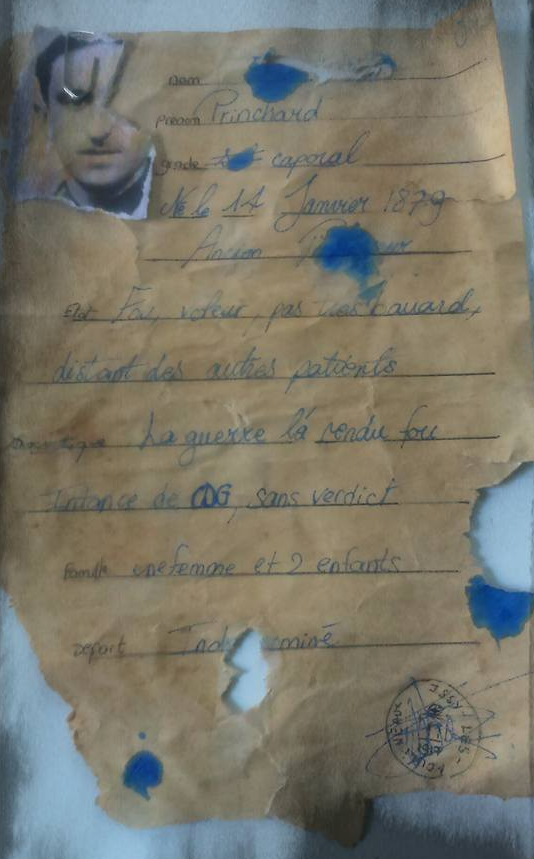 nom
prenom Princhard
grade caporal
Né le 14 Janvier 1879
Ancien
Etat Fou, voleur, pas tres bavard,
distant des autres patients
La guerre l'a rendu fou
Intance de CDG, sans verdict
famille une femme et 2 enfants
départ Ind miné
ISSY-LES-MOULINEAUX